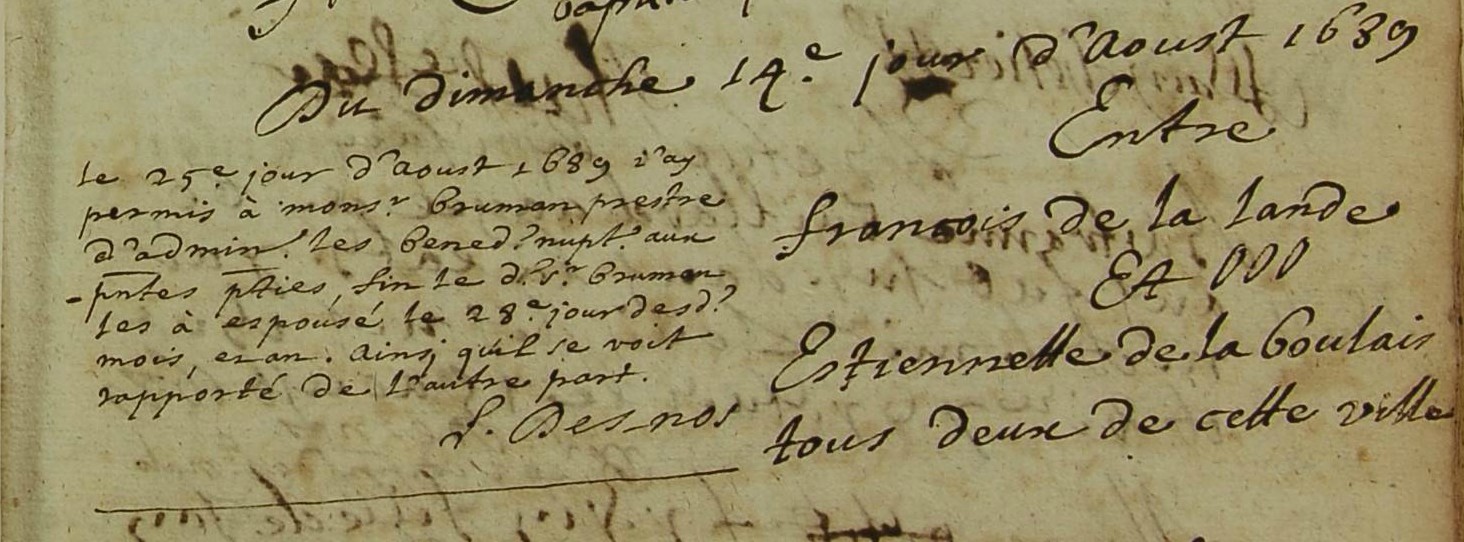 Du dimanche 14.e jour d'Aoust 1689
Entre
francois de la lande
Et
Estiennette de la boulais
tous deux de cette ville
le 25e jour d'aoust 1689 i'ay
permis à mons.r bruman prestre
d'admin.r les bened.s nupt.s aux
pntes pties, le d.t s.r bruman
les à espousé le 28.e jour desd.s
mois, et an. Ainsj qu'il se voit
rapporté de l'autre part.
Des-nos